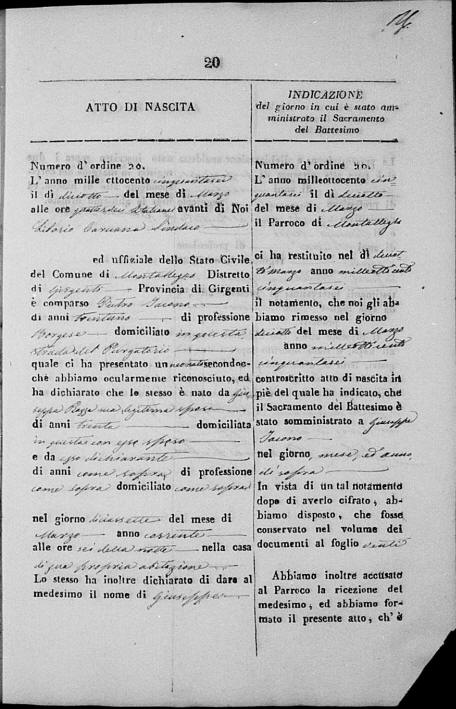 20
ATTO DI NASCITA
Numero d'ordine 20.
L'anno mille ottocento cinquantasei
il dì diciotto del mese di Marzo
alle ore quattordici Italiane avanti di Noi
Liborio Sindaco
ed uffiziale dello Stato Civile
del Comune di Montallegro Distretto
di Girgenti Provincia di Girgenti
è comparso Pietro Iacono
di anni trentuno di professione
Borgese domiciliato in questa
strada del Purgatorio
quale ci ha presentato un neonato secondoc-
chè abbiamo ocularmente riconosciuto, ed
ha dichiarato che lo stesso è nato da Giu-
seppa sua legittima sposa
di anni trenta domiciliata
in questa con esso sposo
e da esso dichiarante
di anni come sopra di professione
come sopra domiciliato come sopra
nel giorno diciassette del mese di
Marzo anno corrente
alle ore sei della notte nella casa
di sua propria abitazione
Lo stesso ha inoltre dichiarato di dare al
medesimo il nome di Giuseppe
INDICAZIONE
del giorno in cui è stato am-
ministrato il Sacramento
del Battesimo
Numero d'ordine 20.
L'anno milleottocento cin-
quantasei il dì diciotto
del mese di Marzo
il Parroco di Montallegro
ci ha restituito nel dì diciot-
to marzo anno milleottocento
cinquantasei
il notamento, che noi gli ab-
biamo rimesso nel giorno
diciotto del mese di Marzo
anno milleottocento
cinquantasei
controscritto atto di nascita in
piè del quale ha indicato, che
il Sacramento del Battesimo è
stato somministrato a Giuseppe
Iacono
nel giorno mese, ed anno
di sopra
In vista di un tal notamento
dopo di averlo cifrato, ab-
biamo disposto, che fosse
conservato nel volume dei
documenti al foglio venti
Abbiamo inoltre accusato
al Parroco la ricezione del
medesimo, ed abbiamo for-
mato il presente atto, ch'è